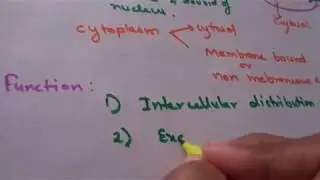 devoid of
nucleus.
Cytosol
cytoplasm
cytosol
Membrane bound
or
non membranous
Function:
1) Intercellular distribution
2) Exc